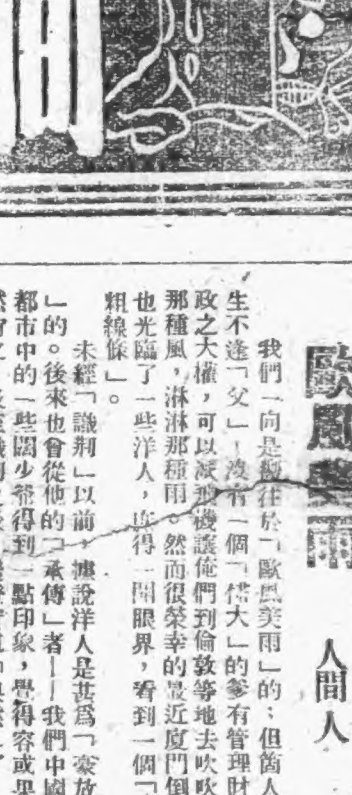 歐風美雨
人間人
我們一向是嚮往於「歐風美雨」的；但箇人
生不逢「父」！沒有一個「偌大」的爹有管理財
政之大權，可以派飛機讓俺們到倫敦等地去吹吹
那種風，淋淋那種雨。然而很榮幸的最近廈門倒
也光臨了一些洋人，庶得一開眼界，看到一個「
粗線條」。
未經「識荆」以前，據說洋人是甚爲「豪放
」的。後來也曾從他的「承傳」者——我們中國
都市中的一些闊少爺得到一點印象，覺得容或果